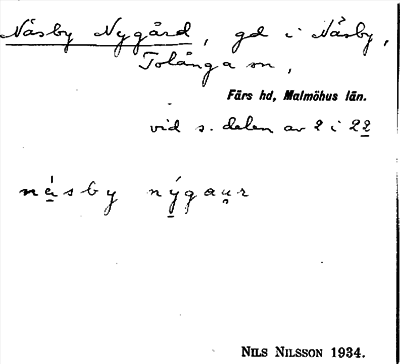 Näsby Nygård, gd i Näsby,
Tolånga sn,
Färs hd, Malmöhus län.
vid s. delen av 2 i 22
näsby nýgaur
NILS NILSSON 1934.